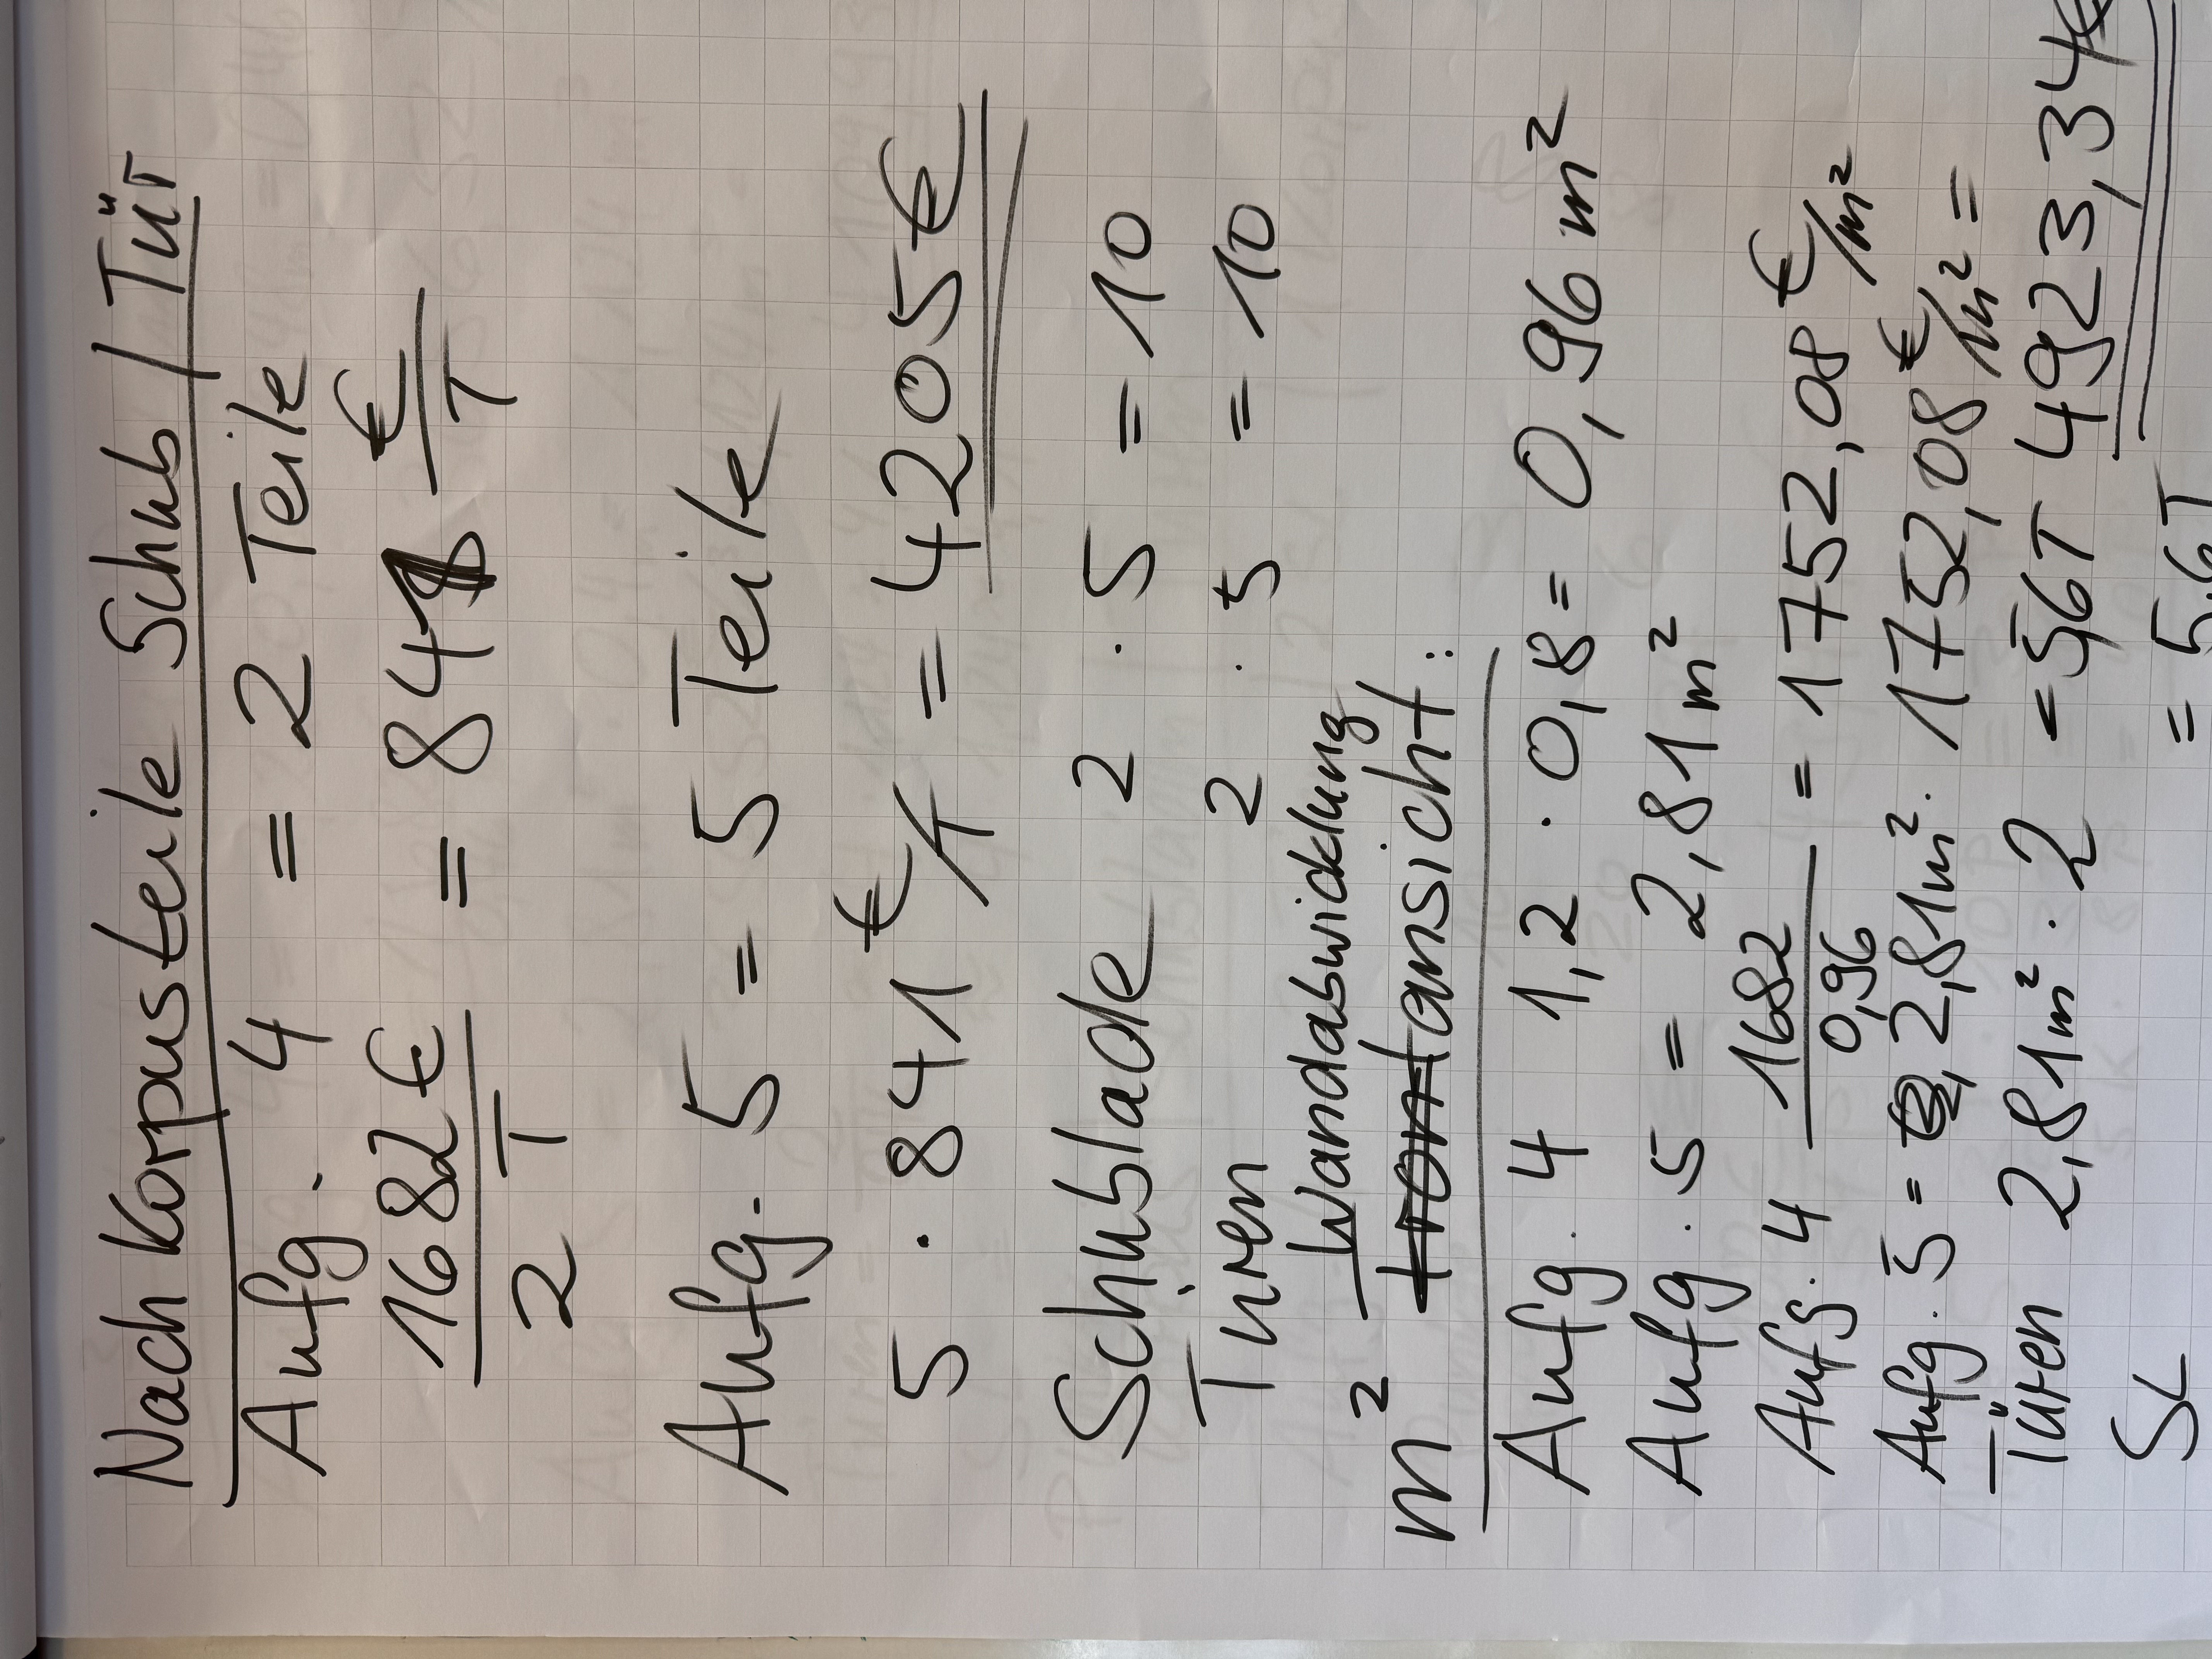 Nach Korpusteile Schub / Tür
Aufg. 4 = 2 Teile
1682 € / 2 T = 841 €/T
Aufg. 5 = 5 Teile
5 · 841 €/T = 4205 €
Schublade 2 · 5 = 10
Türen 2 · 5 = 10
m² Wandabwicklung
ansicht:
Aufg. 4 1,2 · 0,8 = 0,96 m²
Aufg. 5 = 2,81 m²
Aufg. 4 1682 / 0,96 = 1752,08 €/m²
Aufg. 5 = 2,81 m² · 1752,08 €/m² =
4923,34 €
Türen 2,81 m² · 2 = 5,6 T
SL = 5,6 T